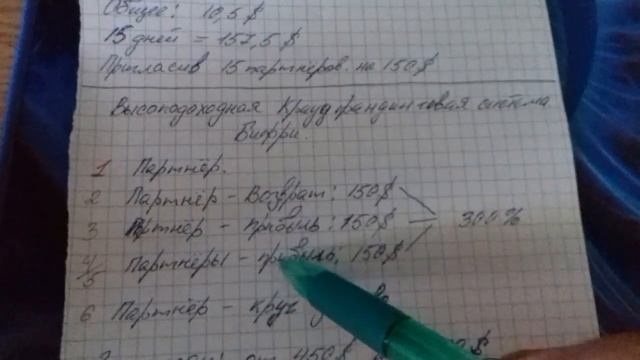 Общее: 10,5 $
15 дней = 157,5 $
Пригласив 15 партнёров. на 150 $
Высоподоходная Краудфандинговая система
Бифри.
1 Партнёр.
2 Партнёр - Возврат: 150 $
3 Пртнёр - прибыль: 150 $ 300 %
4/5 Партнёры - прибыль; 150 $
6 Партнёр - круг
от 450 $